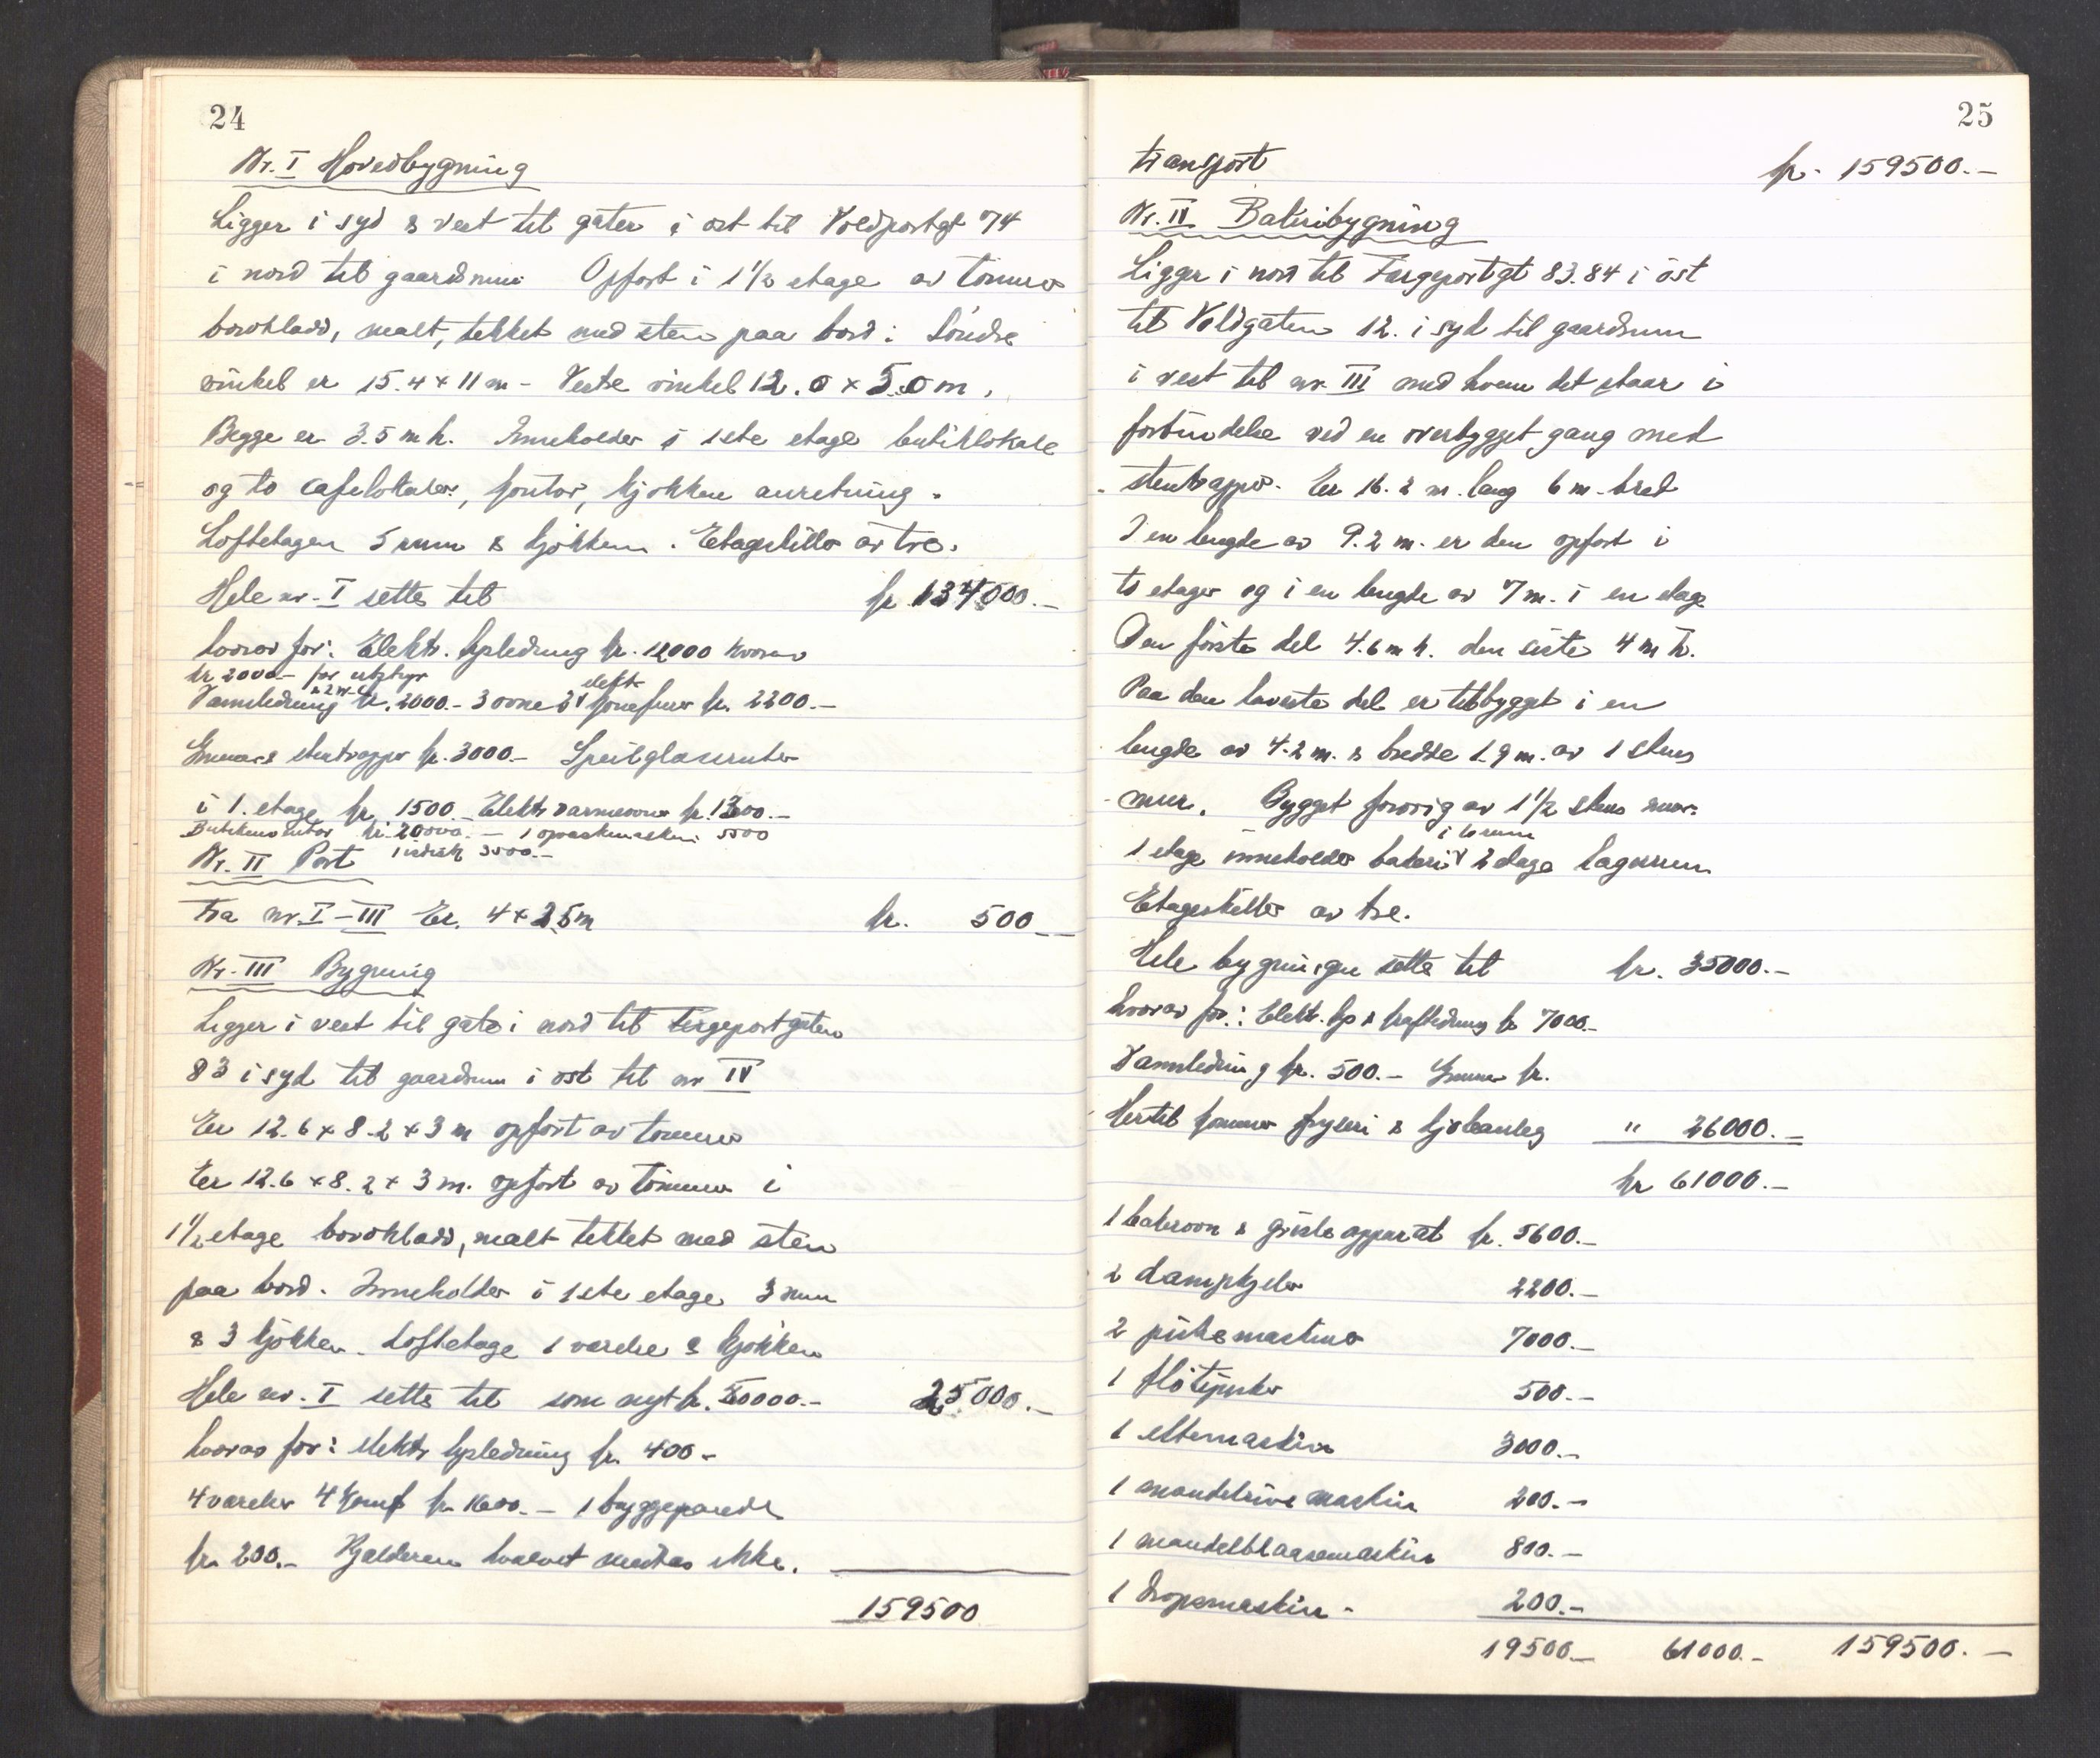 24
Nr. I Hovedbygning
Ligger i syd & vest til gater i øst til Voldportgt 74
i nord til gaardsrum Opført i 1 1/2 etage av tømmer
bordkladd, malt, tekket med sten paa bord: Søndre
vinkel er 15.4 x 11 m - Vestre vinkel 12.0 x 5.0 m.
Begge er 3.5 m h. Inneholder i 1ste etage butiklokale
og to cafelokaler, kontor, kjøkken anretning.
Loftetagen 5 rum & kjøkken. Etageskille av tre.
Hele nr. I settes til kr 134500.-
hvorav for: Elektr. lysledning kr. 12000 hvorav
kr 2000.- for utstyr
Vannledning & w.c. kr. 2000.- 3 ovne 2 elektr. komfurer kr. 2200.-
Grunnmur & stentrapper kr. 3000.- Speilglassruter
i 1. etage kr. 1500.- Elektr varmeovner kr. 1300.-
Butikinventar kr. 20000.- 1 opvaskmaskin 5500
Nr. II Port
fra nr. I - III Er. 4 x 2.5 m kr. 500.-
Nr. III Bygning
Ligger i vest til gate i nord til Fergeportgaten
83 i syd til gaardsrum i øst til nr IV
Er 12.6 x 8.2 x 3 m opført av tømmer
Er 12.6 x 8.2 x 3 m. opført av tømmer i
1 1/2 etage bordkladd, malt tekket med sten
paa bord. Inneholder i 1ste etage 3 rum
& 3 kjøkken. Loftetage 1 værelse & kjøkken
Hele nr. I settes til som nyt kr. 50000.- 25000.-
hvorav for: elektr lysledning kr. 400.-
4 værelser 4 komf kr 1600.- 1 bryggepande
kr. 200.- Kjelderen hvelvet medtas ikke.
159500
25
transport kr. 159500.-
Nr. IV Bakeribygning
Ligger i nord til Fergeportgt 83.84 i øst
til Voldgaten 12. i syd til gaardsrum
i vest til nr. III med hvem det staar i
forbindelse ved en overbygget gang med
stentrapper. Er 16.2 m. lang 6 m. bred
I en lengde av 9.2 m. er den opført i
to etager og i en lengde av 7 m. i en etage
Den første del 4.6 m h. den siste 4 m h.
Paa den laveste del er tilbygget i en
lengde av 4.2 m. & bredde 1.9 m. av 1 stens
mur. Bygget forøvrig av 1 1/2 stens mur.
1 etage inneholder bakeri i to rum 2 etage lagerrum
Etageskiller av tre.
Hele bygningen settes til kr. 35000.-
hvorav for: Elektr. lys & kraftledning kr 7000.-
Vannledning kr. 500.- Grunnmur kr.
Hertil kommer fryseri & kjøleanleg " 26000.-
kr 61000.-
1 bakerovn & grislsapparat kr. 5600.-
2 dampkjeler 2200.-
2 piskemaskiner 7000.-
1 fløtepisker 500.-
1 eltemaskin 3000.-
1 mandelrivemaskin 200.-
1 mandelblaasemaskin 800.-
1 dropsmaskin - 200.-
19500.- 61000.- 159500.-